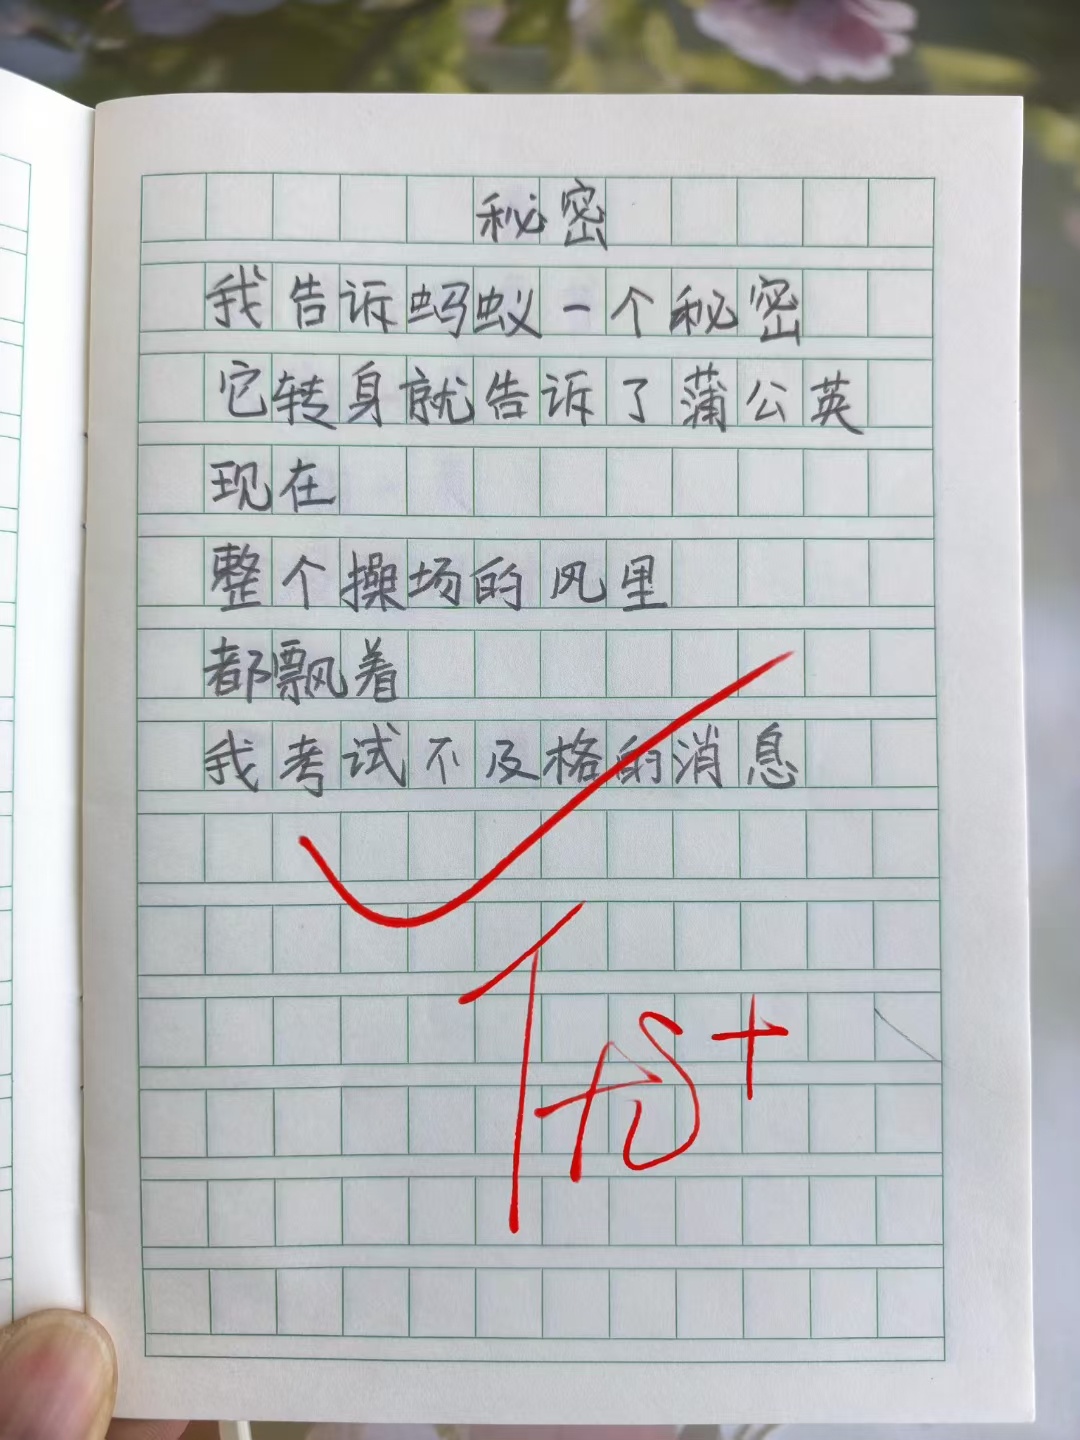 秘密
我告诉蚂蚁一个秘密
它转身就告诉了蒲公英
现在
整个操场的风里
都飘着
我考试不及格的消息